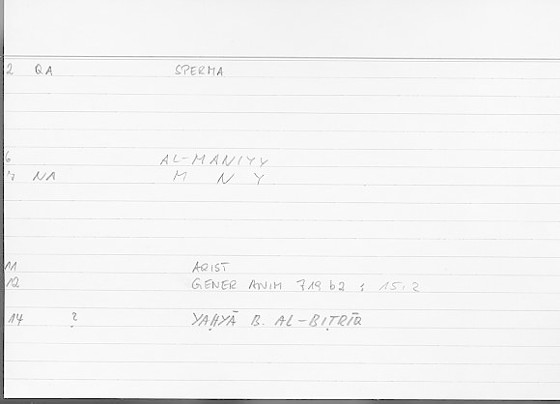 2 QA SPERMA
6 AL-MANIYY
7 NA M N Y
11 ARIST
12 GENER ANIM 719 b2 ; 15.2
14 ? YAḤYĀ B. AL-BIṬRĪQ